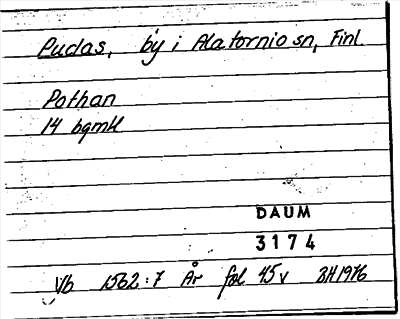 Pudas, by i Alatornio sn, Finl.
Pothan
14 bgmH
DAUM
3174
Vb 1562:7 År fol 45v BH1976